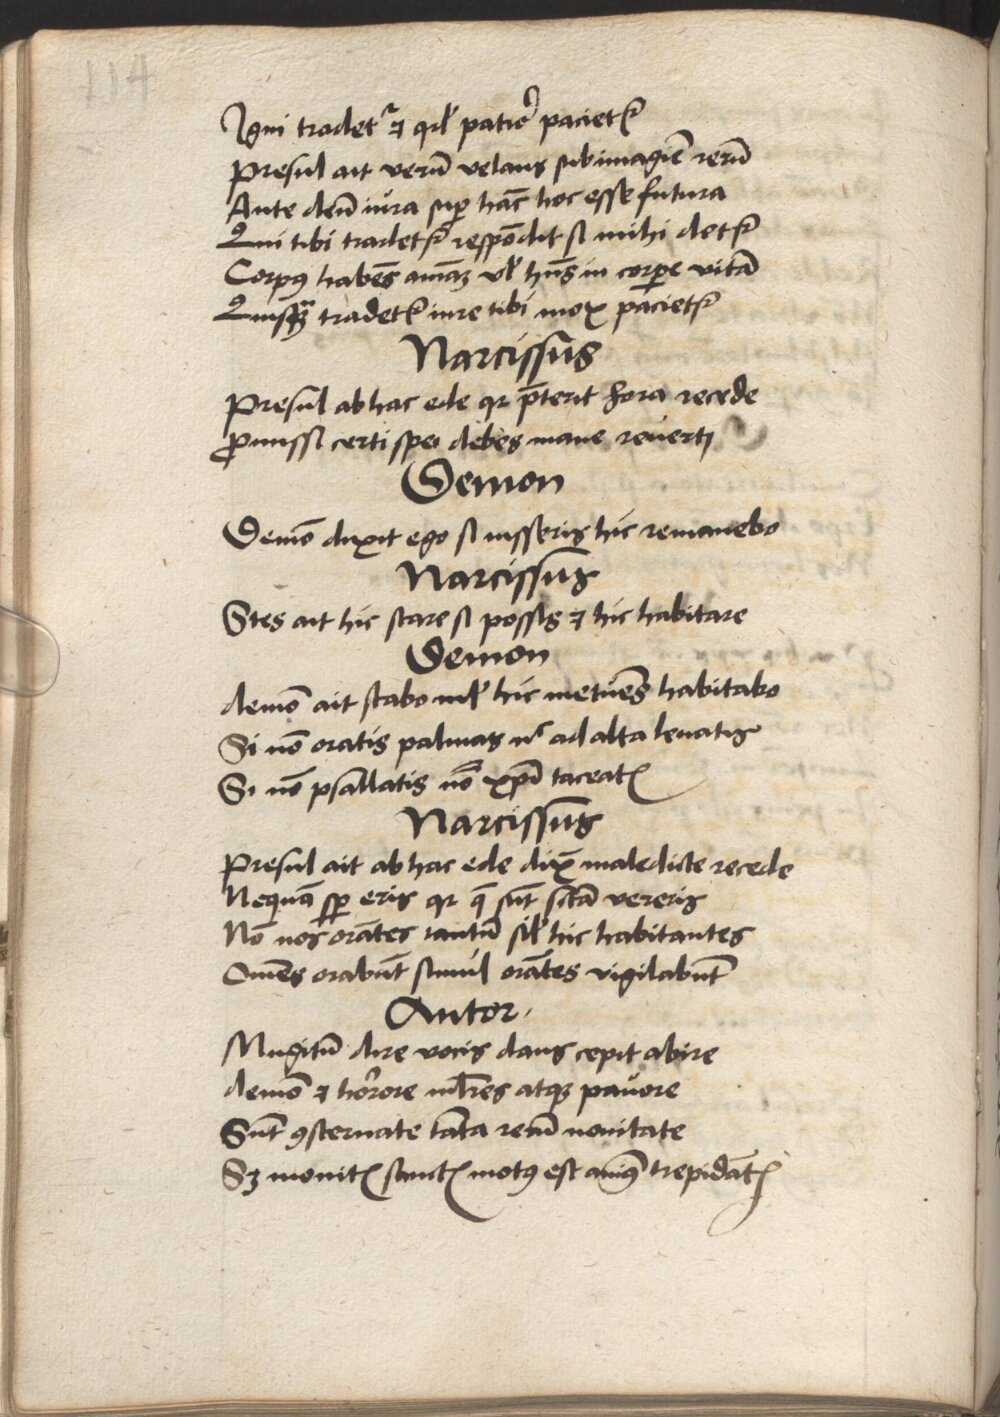 Igni tradet᷑ ⁊ qđ patior paciet᷑
Presul ait verū velans sub imagīe rerū
Ante deū iura sup hāc hoc esse futura
Qui tibi tradet᷑ respōdit si mihi det᷑
Corpꝰ habēs aīaꝫ vl̓ hn̄s in corpe vitā
Quisꝗ̄ tradet᷑ iure tibi mox paciet᷑
Narcissus
Presul ab hac ede qr p̄terit hora recede
Promissi certi spei debes mane reuerti
Demon
Demō dixit ego si iusseris hic remanebo
Narcissus
Stes ait hic stare si possis ⁊ hic habitare
Demon
demō ait stabo nil̓ hic metuēs habitabo
Si nō oratis palmas nͨ ad alta leuatis
Si nō psallatis nōᷤ xp̄i taceatꝭ
Narcissus
Presul ait ab hac ede dix̄ maledicte recede
Nequā sp̄ eris qr q̄ sūt sctā vereris
Nō nos orātes tantū sil̓ hic habitantes
Om̄es orabūt simul orātes vigilabūt
Autor
Mugitū dire vocis dans cepit abire
demō ⁊ horrore ml̄res atqꝫ pauore
Sūt ꝯsternate tāta rerū nouitate
Sꝫ monitꝭ sanctꝭ motꝰ est animꝰ trepidātꝭ